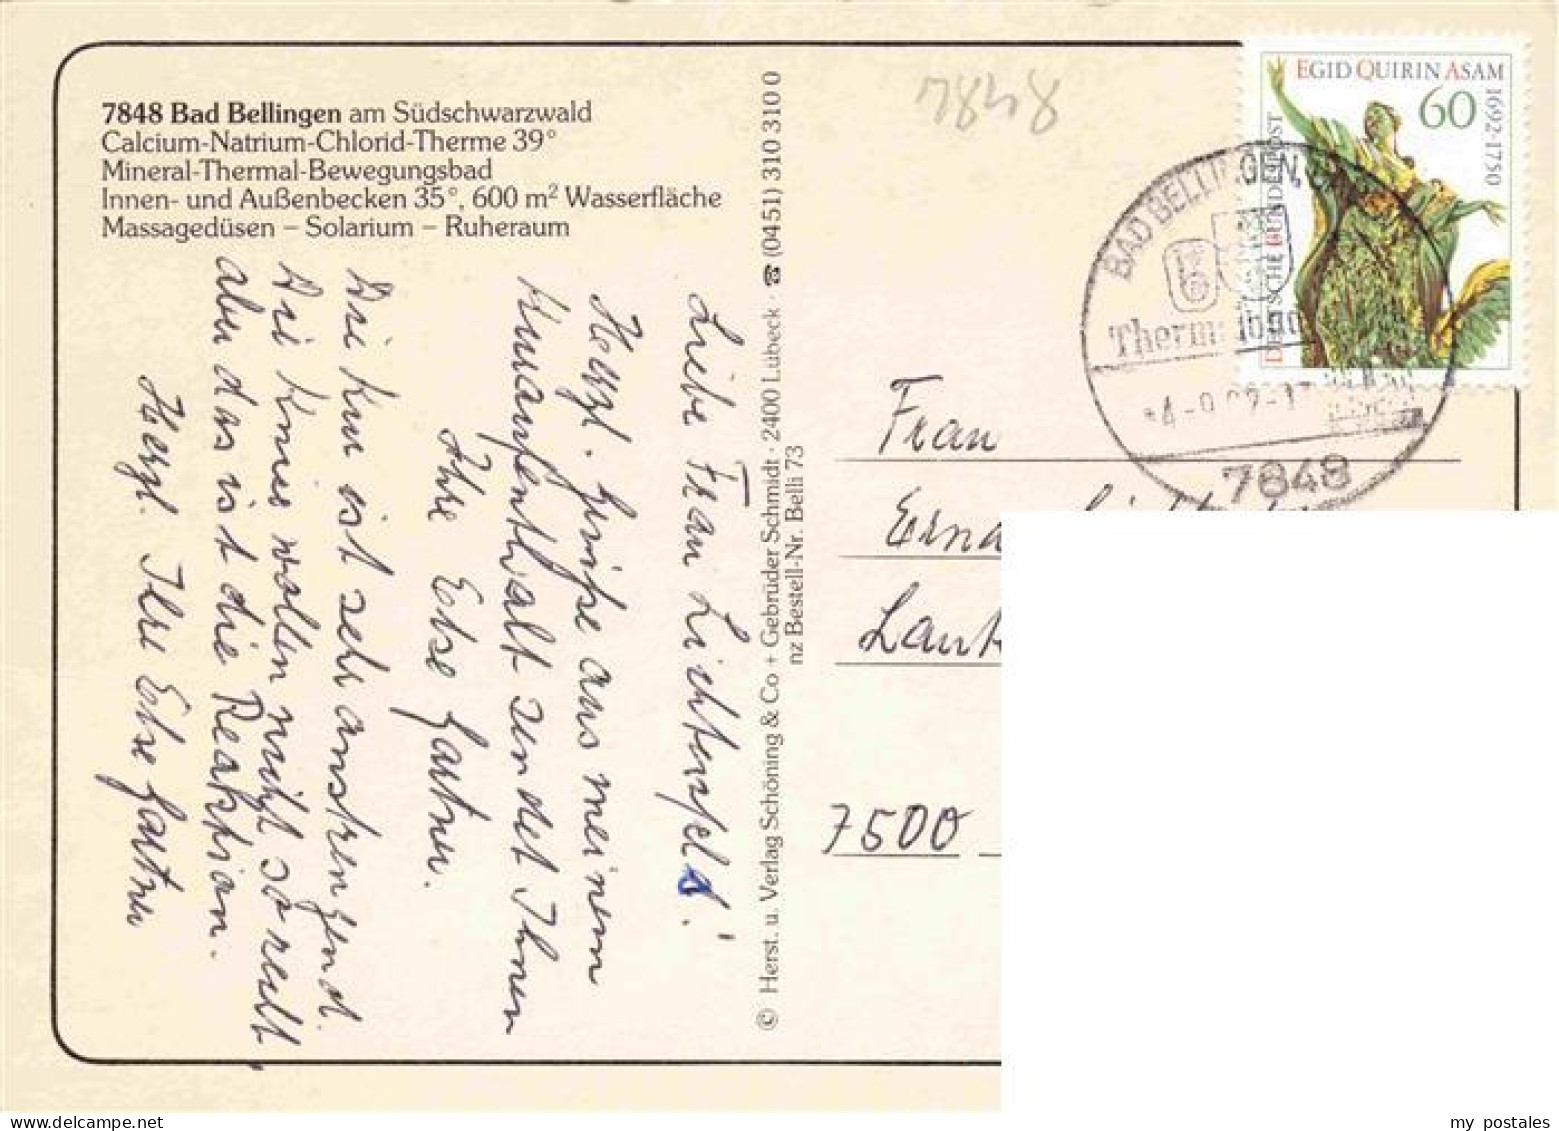 7848 Bad Bellingen am Südschwarzwald
Calcium-Natrium-Chlorid-Therme 39°
Mineral-Thermal-Bewegungsbad
Innen- und Außenbecken 35°, 600 m² Wasserfläche
Massagedüsen – Solarium – Ruheraum
Liebe Frau Lichtenfels!
Herzl. Grüße aus meinem
Kuraufenthalt sendet Ihnen
Ihre Else Gartner.
Die Kur ist sehr anstrengend.
Die Knie wollen nicht so recht,
aber das ist die Reaktion.
Herzl. Ihre Else Gartner
© Herst. u. Verlag Schöning & Co + Gebrüder Schmidt · 2400 Lübeck · ☎ (0451) 310 310 0
nz Bestell-Nr. Belli 73
7848
EGID QUIRIN ASAM
1692-1750
60
DEUTSCHE BUNDESPOST
BAD BELLINGEN
7848
Frau
Erna
7500
my postales